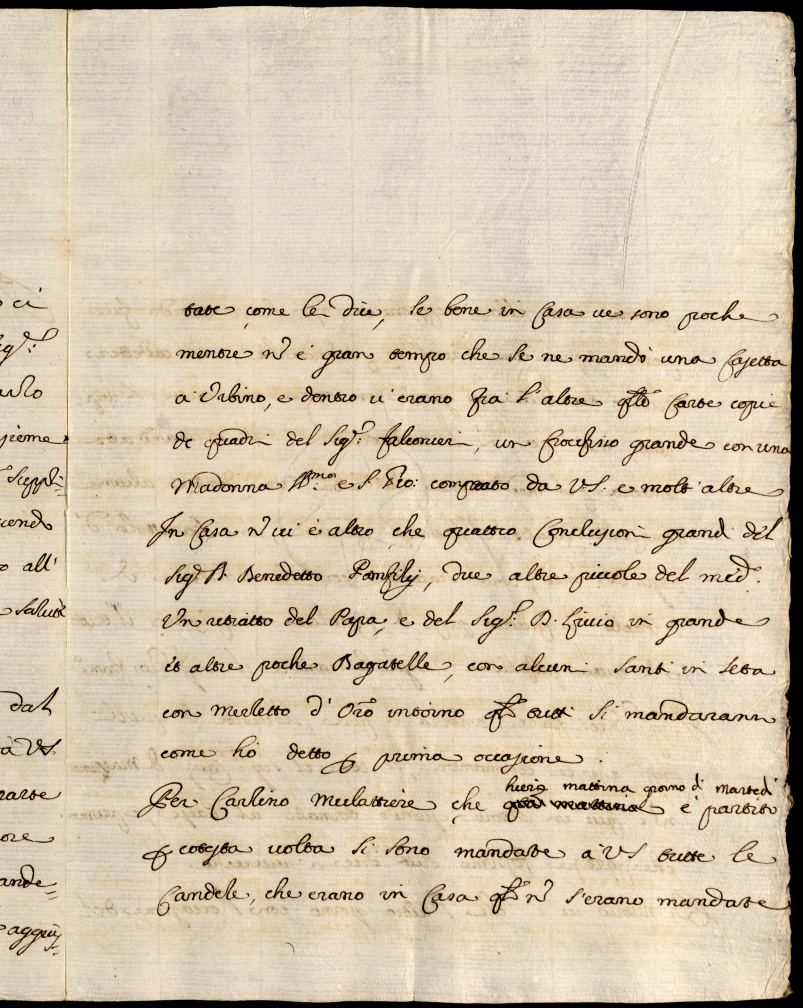 ci
Sig.r:
pieme
Suppl=
cend
o all'
e salute
dal
à VS.
rarte
ore
ande=
aggiu=
tate come le dice, se bene in Casa ve sono poche
mentre nõ è gran tempo che se ne mandò una Cassetta
a Urbino, e dentro vi erano fra l'altre Carte copie
de quadri del Sig.r: falconieri, un Crocefisso grande con una
Madonna e S. Gio: comprato da VS. e molt'altre
In Casa nõ vi è altro che quattro Conclusioni grandi del
Sig.r D. Benedetto Pamfilij, due altre piccole del med.o
Un ritratto del Papa, e del Sig.r: D. Livio in grande
et altre poche Bagatelle, con alcuni santi in seta
con merletto d'Oro intorno tutti si mandarann
come hò detto p prima occasione.
Per Carlino Mulattiere che hieri mattina giorno di Martedì è partito
p cotesta volta si sono mandate à VS tutte le
Candele, che erano in Casa nõ s'erano mandate